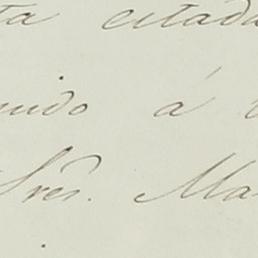 ta citada
uido á
Sres. Ma